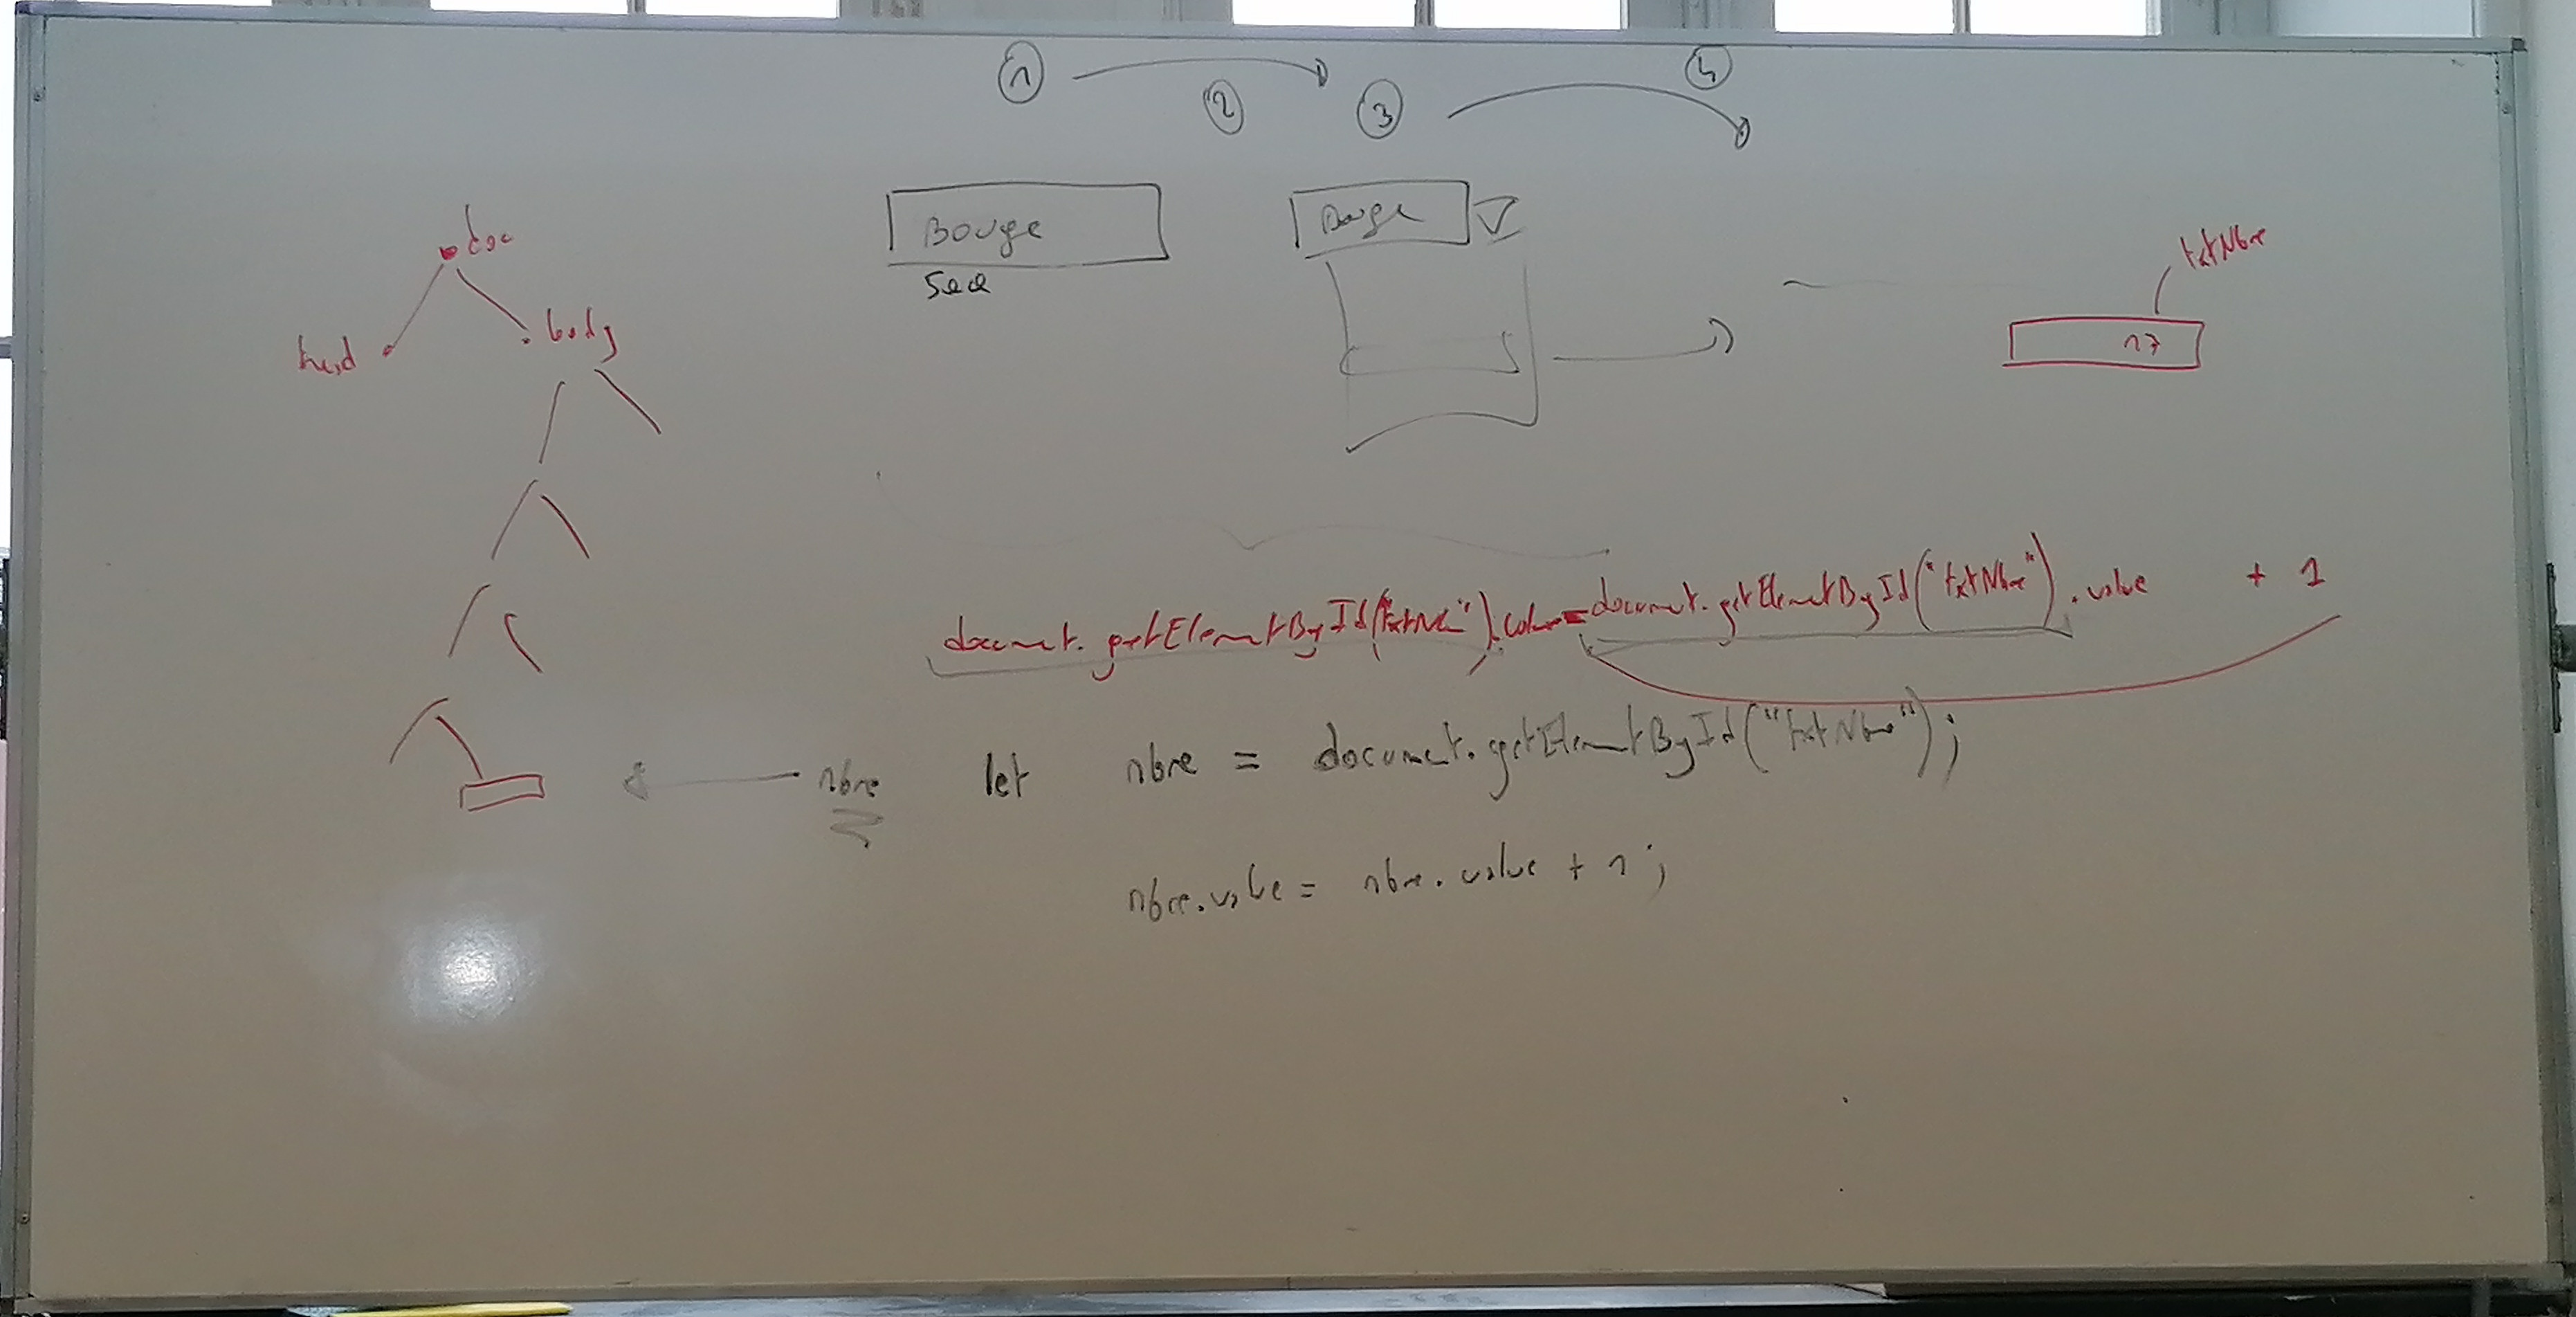 1 2 3 4
Bouge
Bouge
doc
head
body
txtNbre
17
document.getElementById("txtNbre").value=document.getElementById("txtNbre").value + 1
nbre
let nbre = document.getElementById("txtNbre");
nbre.value = nbre.value + 1;